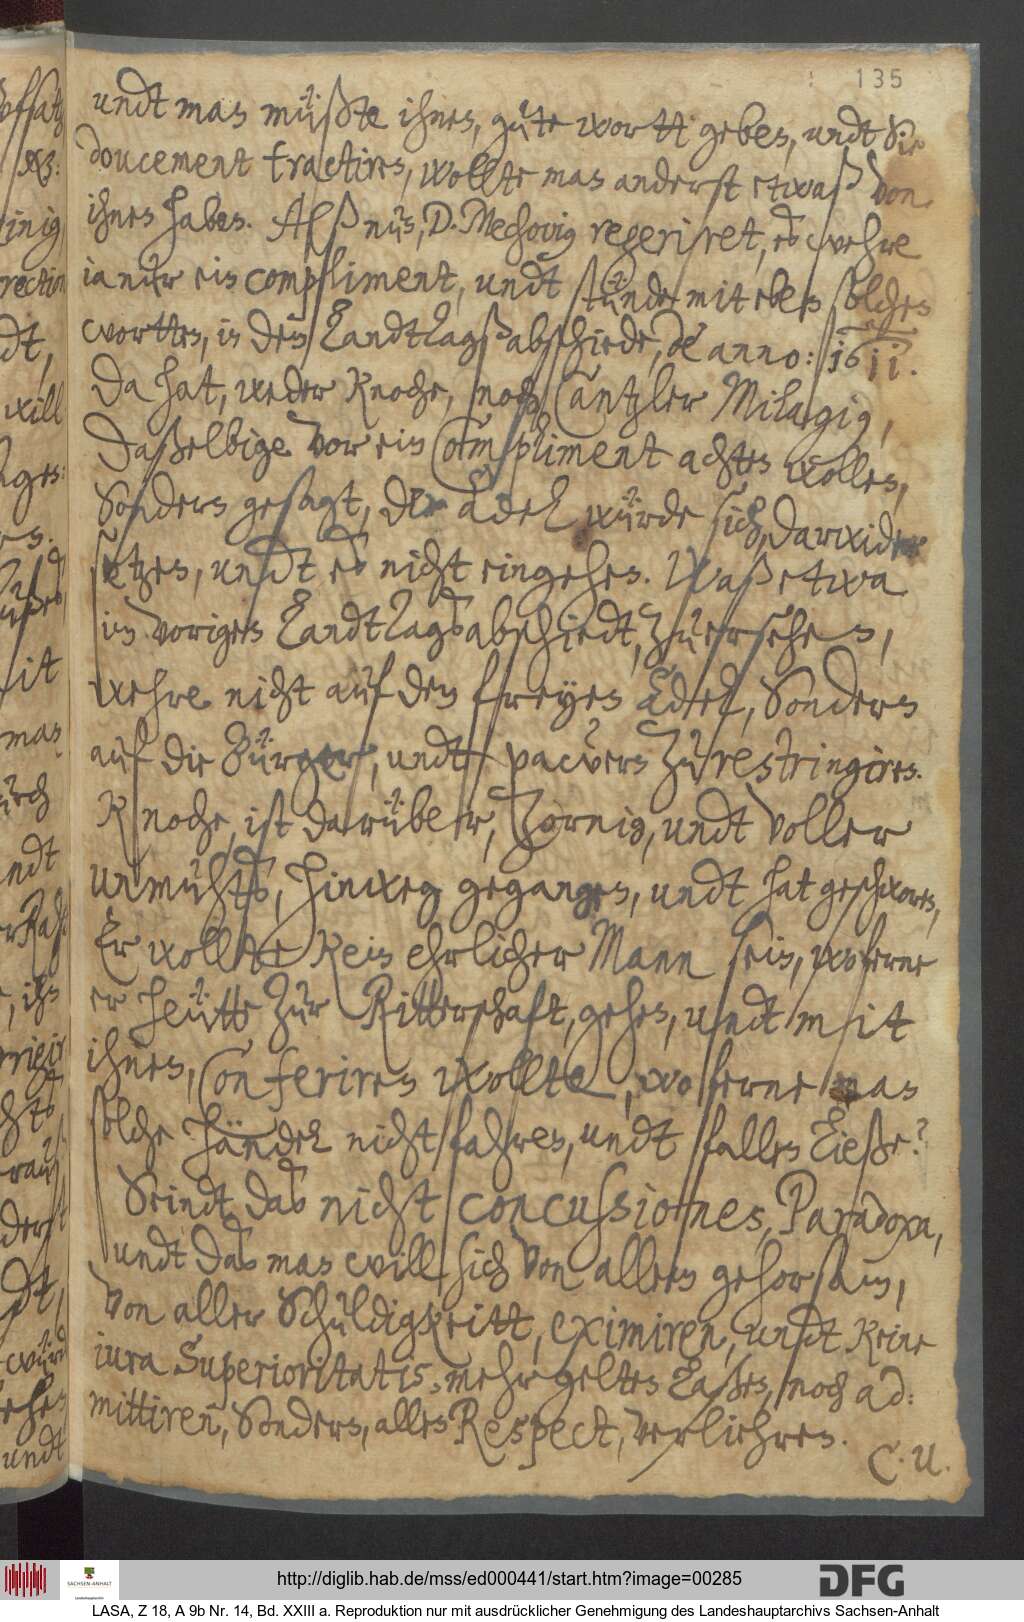 135
undt man müßte ihnen, gute wortt geben, undt Sie
doucement tractiren, wollte man anderst etwaß von
ihnen haben. Alß nun, D. Mechovig regeriret, es wehre
ia nur ein compliment, undt stünde mit eben solchen
wortten, in den LandtTagßabschiede, de anno: 1611.
Da hat, weder Knoche, noch Cantzler Milagig,
daßelbige vor ein Compliment achten wollen,
Sondern gesagt, der Adel würde sich, darwider
setzen, undt es nicht eingehen. Waß etwa
im vorigen LandtTagsabschiedt, zu ersehen,
wehre nicht auf den freyen Adel, Sondern
auf die Bürger, undt pawern zu restringiren.
Knoche, ist darüber, Zornig, undt voller
unmuhts, hinweg gegangen, undt hat geschworen,
Er wollte kein ehrlicher Mann sein, woferne
er heütte zur Ritterschaft, gehen, undt mit
ihnen, Conferiren wollte, woferne man
solche händel nicht fahren, undt fallen ließe?
Seindt das nicht concussiones, Paradoxa,
undt das man will sich von allem gehorsam,
von aller Schuldigkeitt, eximiren, undt keine
iura Superioritatis, mehr gelten laßen, noch ad:
mittiren, Sondern, allen Respect, verliehren.
C. U.
http://diglib.hab.de/mss/ed000441/start.htm?image=00285
SACHSEN-ANHALT
DFG
LASA, Z 18, A 9b Nr. 14, Bd. XXIII a. Reproduktion nur mit ausdrücklicher Genehmigung des Landeshauptarchivs Sachsen-Anhalt